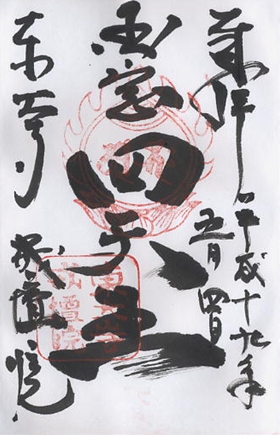 奉拝 平成十九年
五月四日
国宝四天王
東大寺
戒壇院